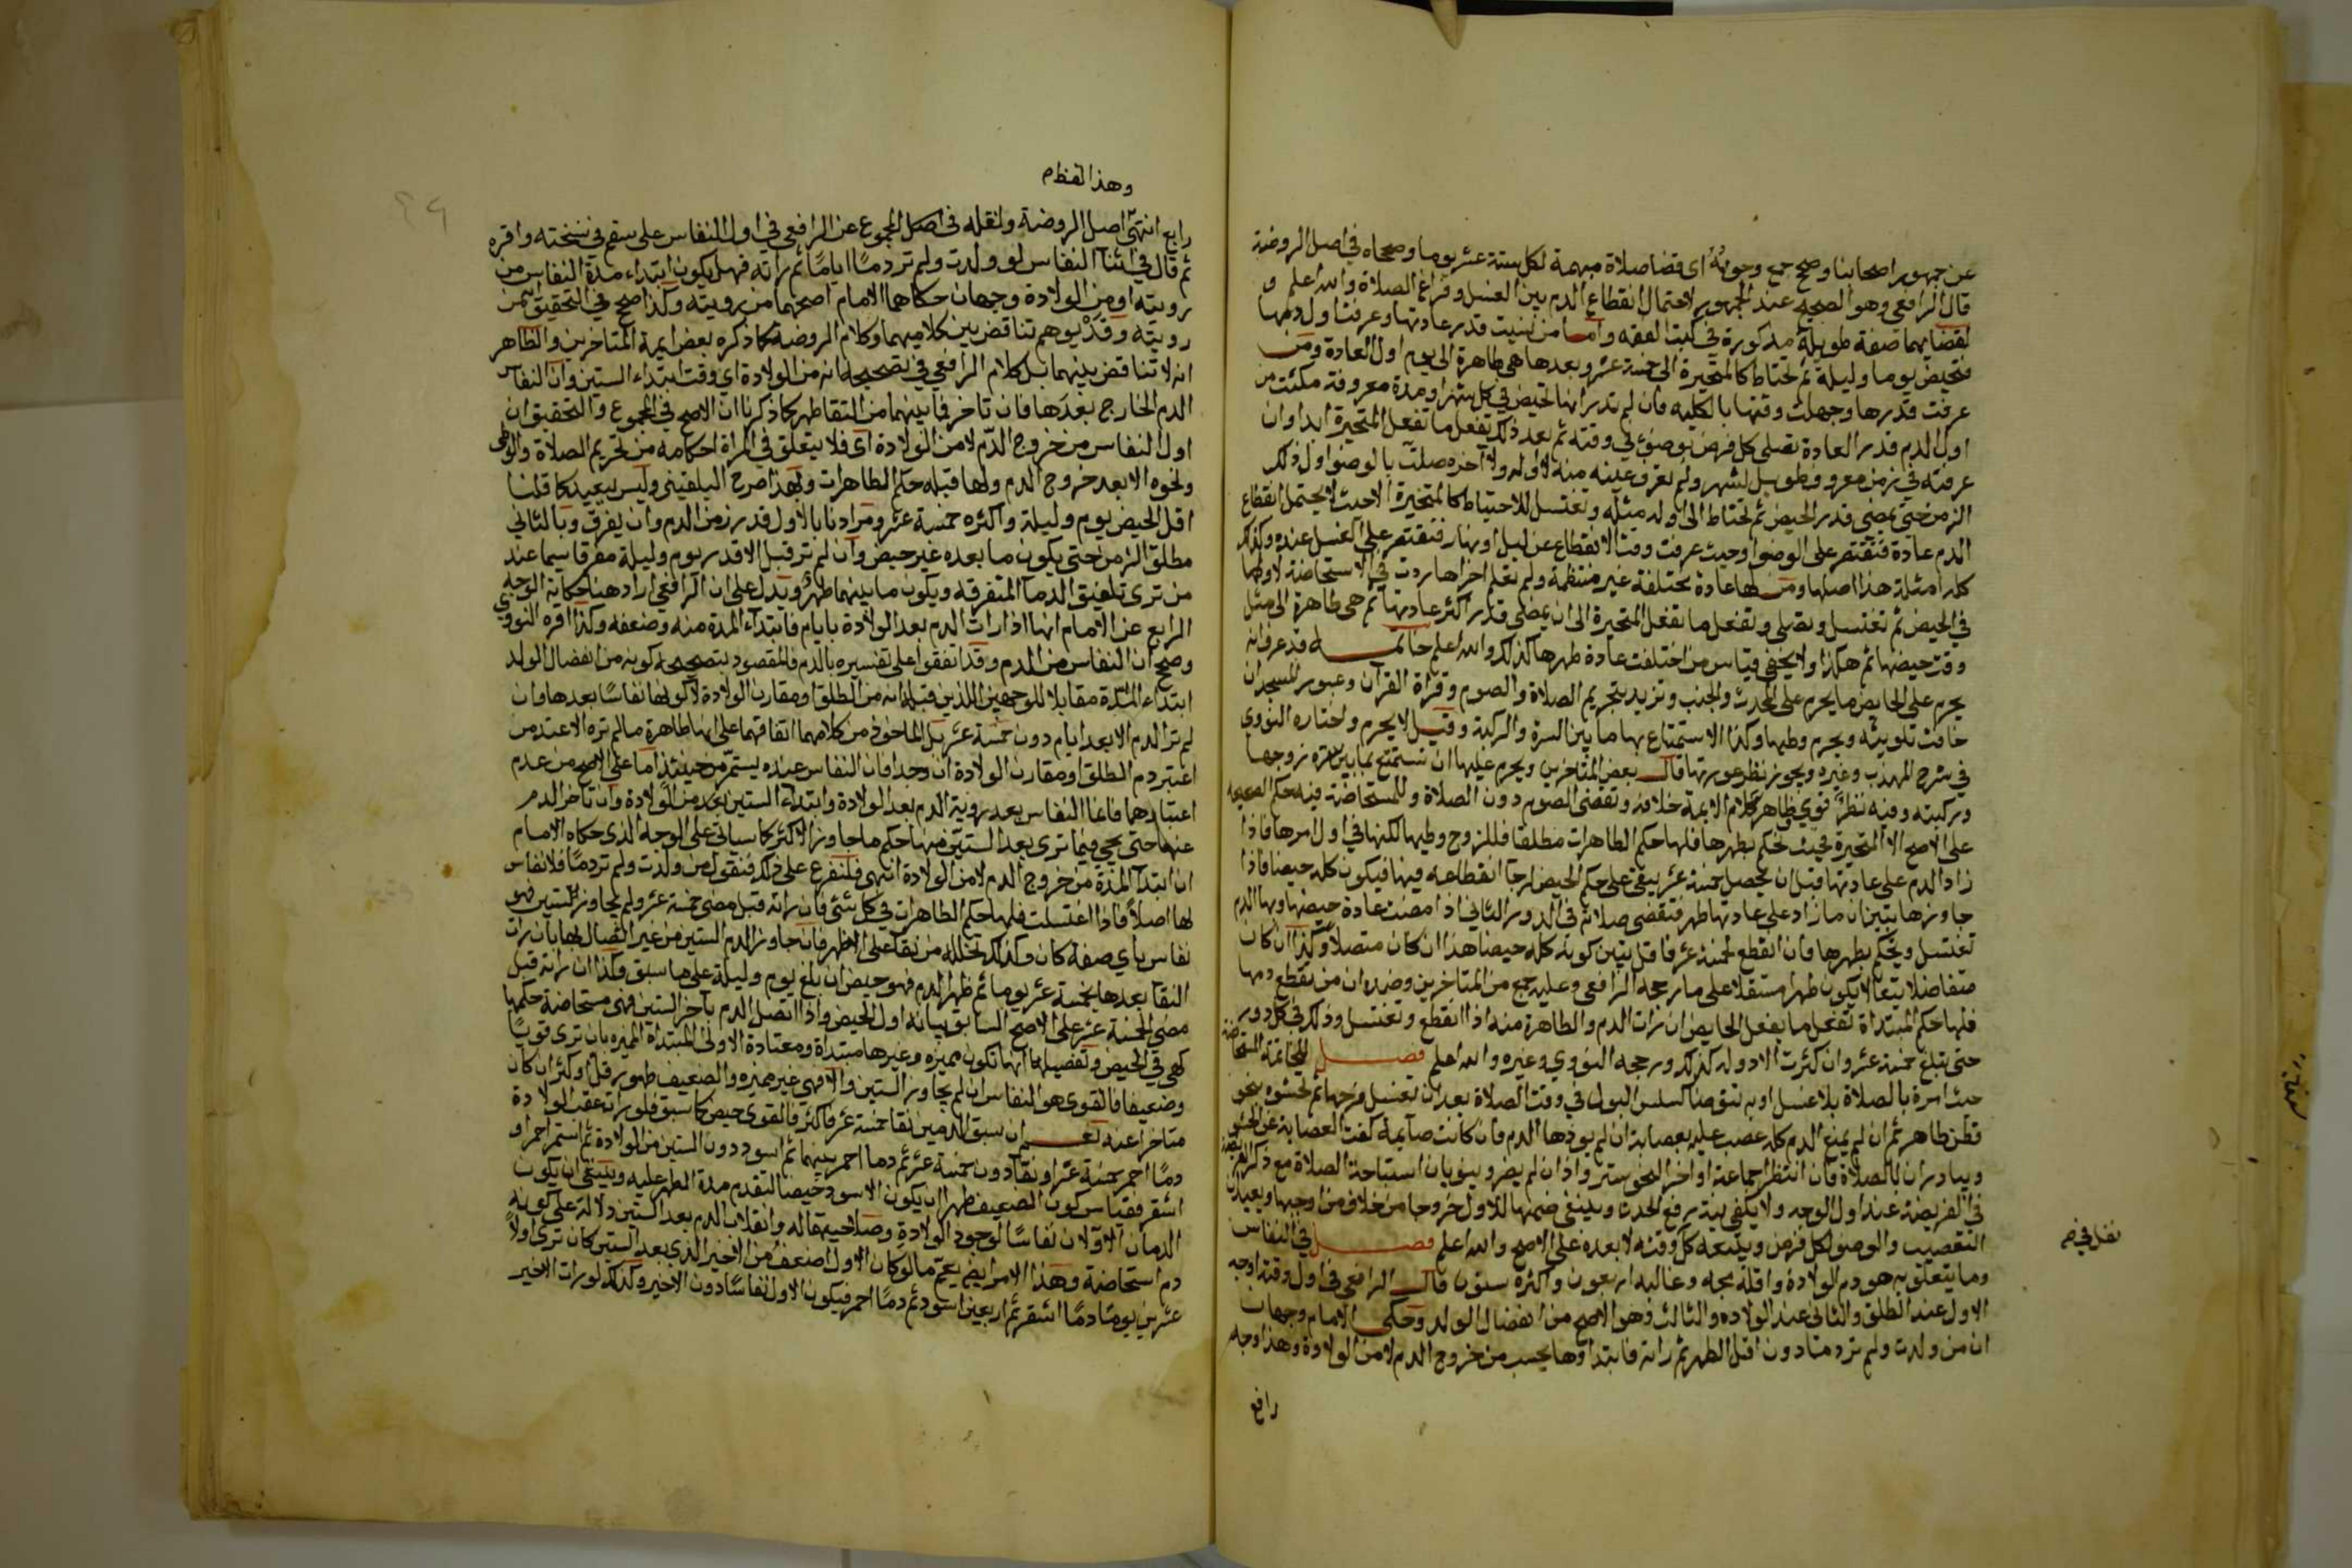 عن جمهور اصحابنا وصحح جمع وجوبه اى قضا صلاة مبهمة لكل ستة عشر يوما وصححاه في اصل الروضة
قال الرافعي وهو الصحيح عند الجمهور لاحتمال انقطاع الدم بين الغسل وفراغ الصلاة والله اعلم و
لقضايهما صفة طويلة مذكورة في كتب الفقه واما من نسيت قدر عادتها وعرفت اول دمها
فتحيض يوما وليلة ثم تحتاط كالمتحيرة الى خمسة عشر وبعدها هي طاهرة الى يوم اول العادة ومن
عرفت قدرها وجهلت وقتها بالكليه فان لم تدر انها تحيض في كل شهر او مدة معروفة مكثت من
اول الدم قدر العادة تصلي كل فرض بوضوء في وقته ثم بعد ذلك تفعل ما تفعل المتحيرة ابدا وان
عرفته في زمن معروف طويل لشهر ولم تعرف عينه منه لا اوله ولا آخره صلت بالوضوا اول ذلك
الزمن حتى يمضي قدر الحيض ثم تحتاط الى اوله مثله وتغتسل للاحتياط كالمتحيرة الا حيث لا يحتمل انقطاع
الدم عادة فتقتصر على الوضوا وحيث عرفت وقت الانقطاع عن ليل او نهار فتقتصر على الغسل عنده ولذلك
كله امثلة هذا اصلها ومن لها عادة مختلفة غير منتظمة ولم تعلم اخرها ردت في الاستحاضة لاولها
في الحيض ثم تغتسل وتصلي وتفعل ما تفعل المتحيرة الى ان يمضي قدر اكثر عادتها ثم هي طاهرة الى مثل
وقت حيضها ثم هكذا ولا يخفى قياس من اختلفت عادة طهرها كذلك والله اعلم خاتمـــه قد عرف انه
يحرم على الحايض ما يحرم على المحدث والجنب وتزيد بتحريم الصلاة والصوم وقراة القرآن وعبور المسجد ان
خافت تلويثه ويحرم وطيها وكذا الاستمتاع بها ما بين السرة والركبة وقيل لا يحرم واختاره النووي
في شرح المهذب وغيره ويجوز نظر عورتها قال بعض المتاخرين ويحرم عليها ان تستمتع بما بين سرة زوجها
وركبته وفيه نظر قوي ظاهر كلام الايمة خلافه وتقضي الصوم دون الصلاة وللمستحاضة فيه حكم الصحيحه
على الاصح الا المتحيرة بحيث تحكم بطهرها فلها حكم الطاهرات مطلقا فللزوج وطيها لكنها في اول امرها فاذا
زاد الدم على عادتها قبل ان يحصل خمسة عشر يبقى على حكم الحيض لرجآ انقطاعه فيها فيكون كله حيضا فاذا
جاوزها يتبين ان ما زاد على عادتها طهر فتقضي صلاته ثم في الدور الثاني اذا مضت عادة حيضها وبها الدم
تغتسل ويحكم بطهرها فان انقطع لخمسة عشر فاقل يتبين كونه كله حيضا هذا ان كان متصلا وكذا ان كان
متفاصلا بنقا لا يكون طهرا مستقلا على ما رجحه الرافعي وعليه جمع من المتاخرين وضده ان من تقطع دمها
فلها حكم المبتداة تفعل ما يفعل الحايض ان رات الدم والطاهرة منه اذا انقطع وتغتسل وذلك في كل دور
حتى يتبلغ خمسة عشر وان كثرت الادوار كذلك ورجحه النووي وغيره والله اعلم فصـــل المستحاضة
حدث امرة بالصلاة بلا غسل او به تتوضا كسلس البول في وقت الصلاة بعد ان تغسل فرجها ثم تحشوه بنحو
قطن طاهر ثم ان لم يمنع الدم كله عصب عليه بعصابة ان لم يوذها الدم فان كانت صآيمة كفت العصابة عن الحشو
ويبادران بالصلاة فان انتظر جماعة او اخر لنحو ستر واذان لم يضر وينويان استباحة الصلاة مع ذكر الفريضة
في الفريضة عند اول الوجه ولا يكفي نية رفع الحدث وينبغي ضمها للاول خروجا من خلاف من اوجبها ويعيدان
التعصيب والوضو لكل فرض ويتبعه كل وقته لا بعده على الاصح والله اعلم فصـــل في النفاس
وما يتعلق به هو دم الولادة واقله مجه وغالبه اربعون واكثره ستون قال الرافعي في اول وقته اوجه
الاول عند الطلق والثاني عند الولادة والثالث وهو الاصح من انفصال الولد وحكى الامام وجهان
ان من ولدت ولم تر دما دون اقل الطهر ثم راته فابتداؤها يحسب من خروج الدم لا من الولادة وهذا وجه
رابع
وهذا لفظه
رابع انتهى اصل الروضة ولنقله في اصل المجموع عن الرافعي في اول النفاس على سقم في نسخته واقره
ثم قال في اثنآ النفاس لو ولدت ولم تر دمًا اياما ثم راته فهل يكون ابتداء مدة النفاس من
رويته او من الولادة وجهان حكاهما الامام اصحهما من رويته وكذا صحح في التحقيق انه من
رويته وقد يوهم تناقض بين كلاميهما وكلام الروضة كما ذكره بعض ايمة المتاخرين والظاهر
انه لا تناقض بينهما بل كلام الرافعي في تصحيحه انه من الولادة اي وقت ابتداء الستين وان النفاس
الدم الخارج بعدها فان تاخر فما بينهما من النقا طهر كما ذكرنا ان الاصح في المجموع والتحقيق ان
اول النفاس من خروج الدم لا من الولادة اى فلا يتعلق في المراة احكامه من تحريم الصلاة والوطى
ونحوه الا بعد خروج الدم ولها قبله حكم الطاهرات وبهذا صرح البلقيني وليس ببعيد كما قلنا
اقل الحيض يوم وليلة واكثره خمسة عشر ومرادنا بالاول قدر زمن الدم وان يفرق وبالثاني
مطلق الزمن حتى يكون ما بعده غير حيض وان لم تر قبل الا قدر يوم وليلة مفرقا سيما عند
من ترى تلفيق الدمآ المتفرقه ويكون ما بينهما طهر ويدل على ان الرافعي اراد هنا حكاية الوجه
الرابع عن الامام انها اذا رات الدم بعد الولادة بايام فابتدآء المدة منه وضعفه وكذا اقره النووي
وصحح ان النفاس من الدم وقد اتفقوا على تفسيره بالدم فالمقصود بتصحيحه كونه من انفصال الولد
ابتداء المدة مقابلا للوجهين اللذين قبله انه من الطلق او مقارن الولادة لا كونها نفاسًا بعدها وان
لم تر الدم الا بعد ايام دون خمسة عشر بل الملحوظ من كلامهما اتفاقهما على انها طاهرة ما لم تره الا عند من
اعتبر دم الطلق او مقارن الولادة ان وجدا فان النفاس عنده يستمر من حينئذ اما على الاصح من عدم
اعتبارهما فانما النفاس بعد روية الدم بعد الولادة وابتداء الستين بعد من الولادة وان تاخر الدم
عنها حتى يجي فيما ترى بعد الستين منها حكم ما جاوز الاكثر كما سياتي على الوجه الذي حكاه الامام
ان ابتدآ المدة من خروج الدم لا من الولادة انتهى فلنفرع على ذلك فنقول من ولدت ولم تر دمًا فلا نفاس
لها اصلاً فاذا اغتسلت فلها حكم الطاهرات في كل شئى فان راته قبل مضي خمسة عشر ولم يجاوز الستين فهو
نفاس باي صفة كان وكذلك تخلله من نقآ على الاظهر فان جاوز الدم الستين من غير اتصال بها بان رات
النقا بعدها بخمسة عشر يوما ثم ظهر الدم فهو حيض ان بلغ يوم وليلة على ما سبق وكذا ان راته قبل
مضي الخمسة عشر على الاصح السابق بيانه اول الحيض واذا اتصل الدم بآخر الستين فهي مستحاضة حكمها
كهي في الحيض وتفصيلها انها تكون مميزه وغيرها مبتداة ومعتادة الاولى المبتداة المميزه بان ترى قويًا
وضعيفا فالقوى هو النفاس ان لم يجاوز الستين والا فهي غير مميزه والضعيف طهور قل او كثر ان كان
متاخرا عنه نعـــم ان سبق الدمين نقا خمسة عشر فاكثر فالقوى حيض كما سبق فلو رات عقب الولادة
دمًا احمر خمسة عشر او نقآ دون خمسة عشر ثم دما احمر بينهما ثم اسود دون الستين من الولادة ثم استمر احمر او
اشقر فقياس كون الضعيف طهرا ان يكون الاسود حيضا لتقدم مدة الطهر عليه وينبغي ان يكون
الدمان الاولان نفاسًا لوجود الولادة وصلاحيتها له وانقلاب الدم بعد الستين دلالة على كونه
دم استحاضة وهذا الامر ايضا يعم ما لو كان الاول اضعف من الاخير الذي بعد الستين كان ترى اولاً
عشرين يومًا دمًا اشقر ثم اربعين اسود ثم دمًا احمر فيكون الاول نفاسًا دون الاخير وكذلك لو رات الاخير